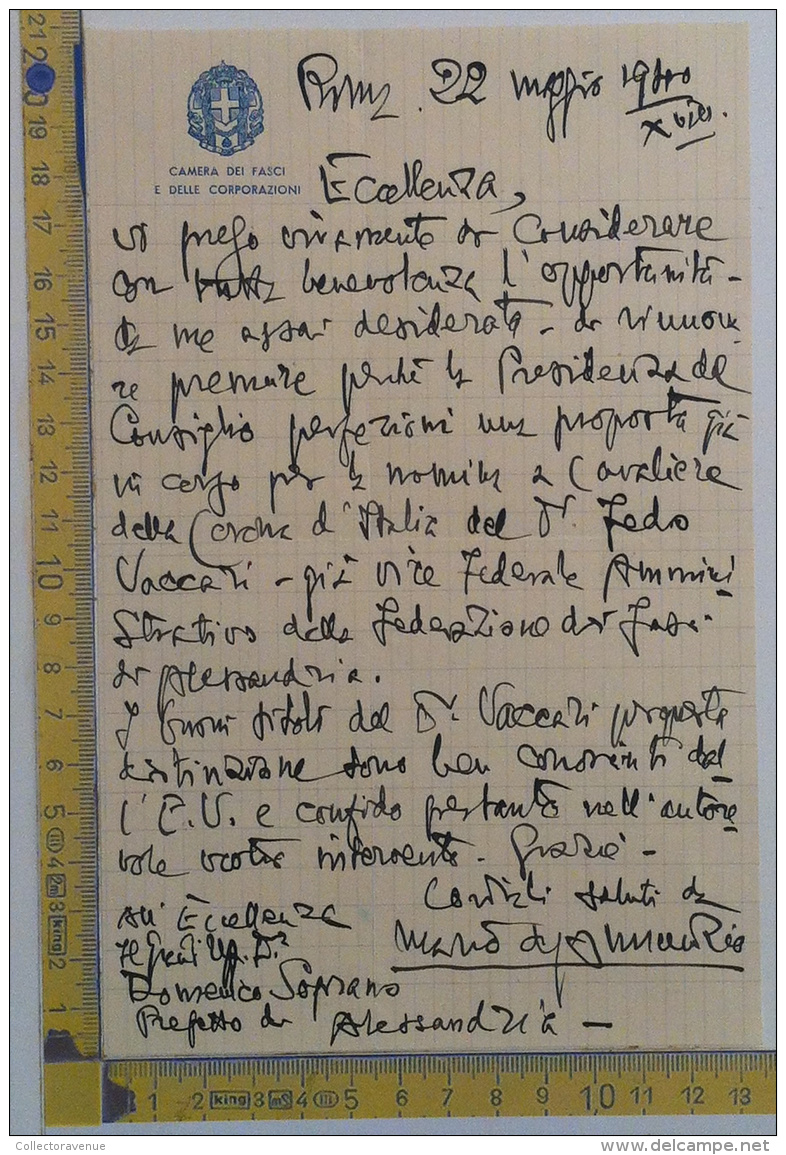 Roma. 22 maggio 1940
XVIII.
CAMERA DEI FASCI
E DELLE CORPORAZIONI
Eccellenza,
vi prego vivamente di considerare
con tutta benevolenza l'opportunità -
da me assai desiderata - di rinnova
re premure perché la Presidenza del
Consiglio perfezioni una proposta già
in corso per la nomina a Cavaliere
della Corona d'Italia del Dr. Fedro
Vaccari - già vice Federale Ammini
strativo della Federazione dei Fasci
di Alessandria.
I buoni titoli del Dr. Vaccari per questa
distinzione sono ben conosciuti dal
l'E.V. e confido pertanto nell'autore
vole vostro intervento. Grazie -
Cordiali saluti da
All'Eccellenza
Il Grand'Uff. Dr
Domenico Soprano
Prefetto di Alessandria -
21 20 19 18 17 16 15 14 13 12 11 10 9 8 7 6 5 4 3 2 1
king
1 2 king 3 4 5 6 7 8 9 10 11 12 13
Collectoravenue
delcampe.net